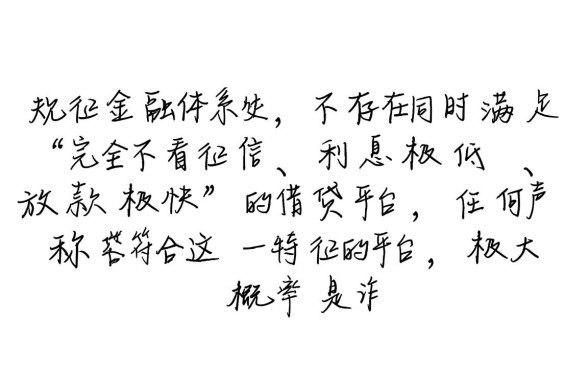 规征金融体系处，不存在同时满足
“完全不看征信、利息极低、
放款极快”的借贷平台，任何声
称若符合这一特征的平台，极大
概率是诈